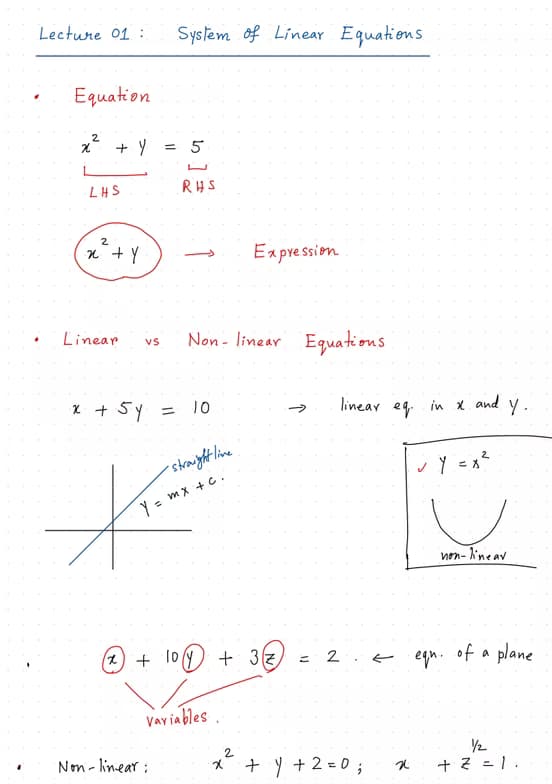 Lecture 01 : System of Linear Equations
• Equation
x² + y = 5
LHS RHS
x² + y → Expression
• Linear vs Non-linear Equations
x + 5y = 10 → linear eq. in x and y.
straight line
y = mx + c.
✓ y = x²
non-linear
x + 10y + 3z = 2 . ← eqn. of a plane
variables .
• Non-linear ; x² + y + 2 = 0 ; x + z^1/2 = 1 .